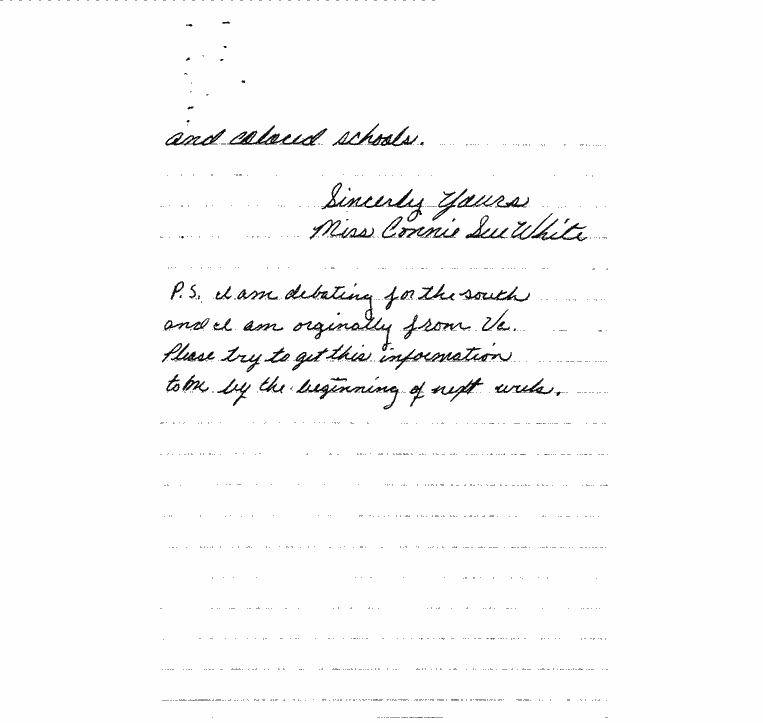 and colored schools.
Sincerly Yours
Miss Connie Sue White
P.S. I am debating for the south
and I am orginally from Va.
Please try to get this information
to me by the beginning of next week.